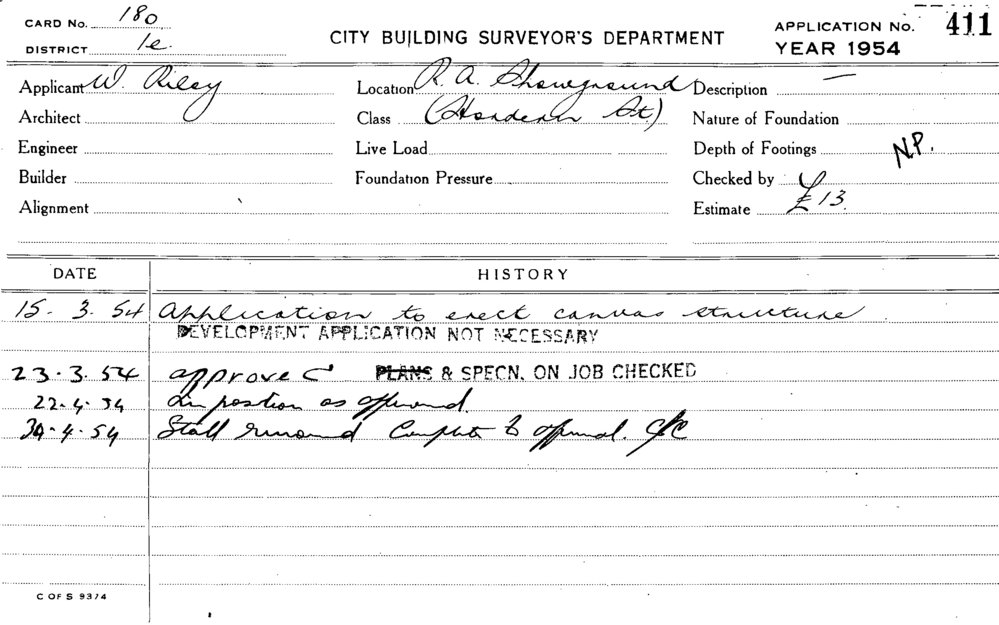 CARD No. 180
DISTRICT 1e.
CITY BUILDING SURVEYOR'S DEPARTMENT
APPLICATION No. 411
YEAR 1954
Applicant W. Riley
Location R. A. Showground
Description —
Architect
Class (Hordern St.)
Nature of Foundation
Engineer
Live Load
Depth of Footings N.P.
Builder
Foundation Pressure
Checked by
Alignment
Estimate £13.
DATE HISTORY
15. 3. 54 Application to erect canvas structure
DEVELOPMENT APPLICATION NOT NECESSARY
23.3.54 approved PLANS & SPECN. ON JOB CHECKED
22.4.54 In position as approved.
30.4.54 Stall removed Complete to approval.
C OF S 9374